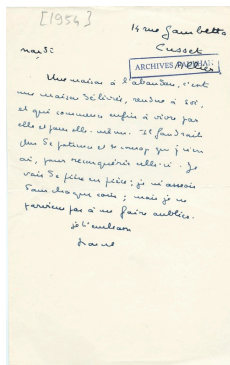 [1954]
14 rue Gambetta
Cusset
Allier
ARCHIVES
mardi
Une maison à l'abandon, c'est
une maison délivrée, rendue à soi,
et qui commence enfin à vivre par
elle et pour elle-même. Il faudrait
plus de patience et de temps que je n'en
ai, pour reconquérir celle-ci. Je
vais de pièce en pièce; je m'assois
dans chaque coin; mais je ne
parviens pas à me faire oublier.
je t'embrasse